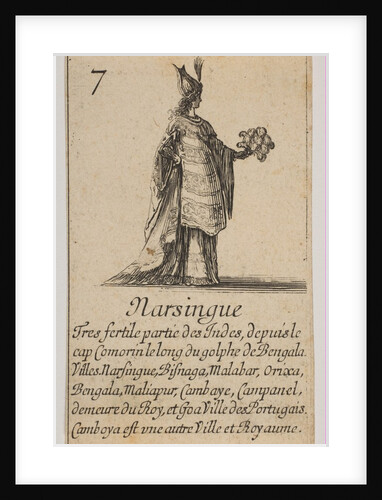 7
Narsingue
Tres fertile partie des Indes, depuis le
cap Comorin le long du golphe de Bengala.
Villes. Narsingue, Bisnaga, Malabar, Orixa,
Bengala, Maliapur, Cambaye, Campanel,
demeure du Roy, et Goa Ville des Portugais.
Camboya est vne autre Ville et Royaume.